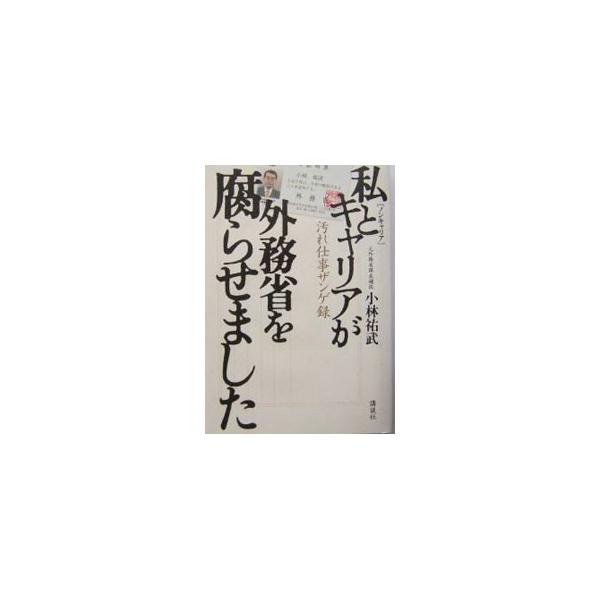 私と
[ノンキャリア]
キャリアが
外務省を
腐らせました
汚れ仕事ザンゲ録
元外務省課長補佐
小林祐武
講談社